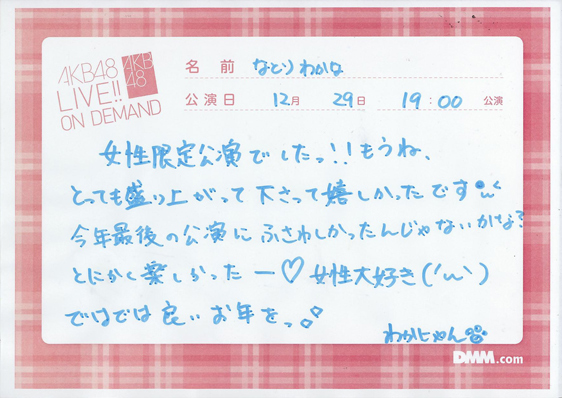 AKB48
LIVE!!
ON DEMAND
AKB
48
名 前 なとりわかな
公演日 12月 29日 19:00 公演
女性限定公演でしたっ!!もうね、
とっても盛り上がって下さって嬉しかったです
今年最後の公演にふさわしかったんじゃないかな?
とにかく楽しかったー♡女性大好き('ω')
ではでは良いお年をっ
わかにゃん
DMM.com